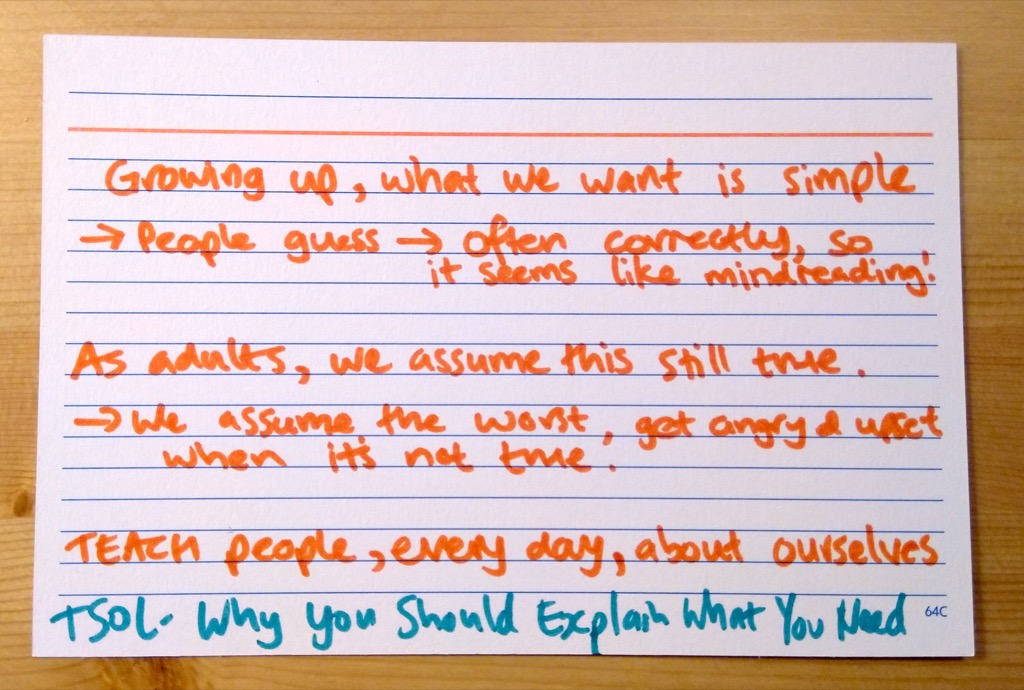 Growing up, what we want is simple
→ People guess → often correctly, so
it seems like mindreading!
As adults, we assume this still true.
→ We assume the worst, get angry & upset
when it's not true.
TEACH people, every day, about ourselves
TSOL- Why You Should Explain What You Need
64C